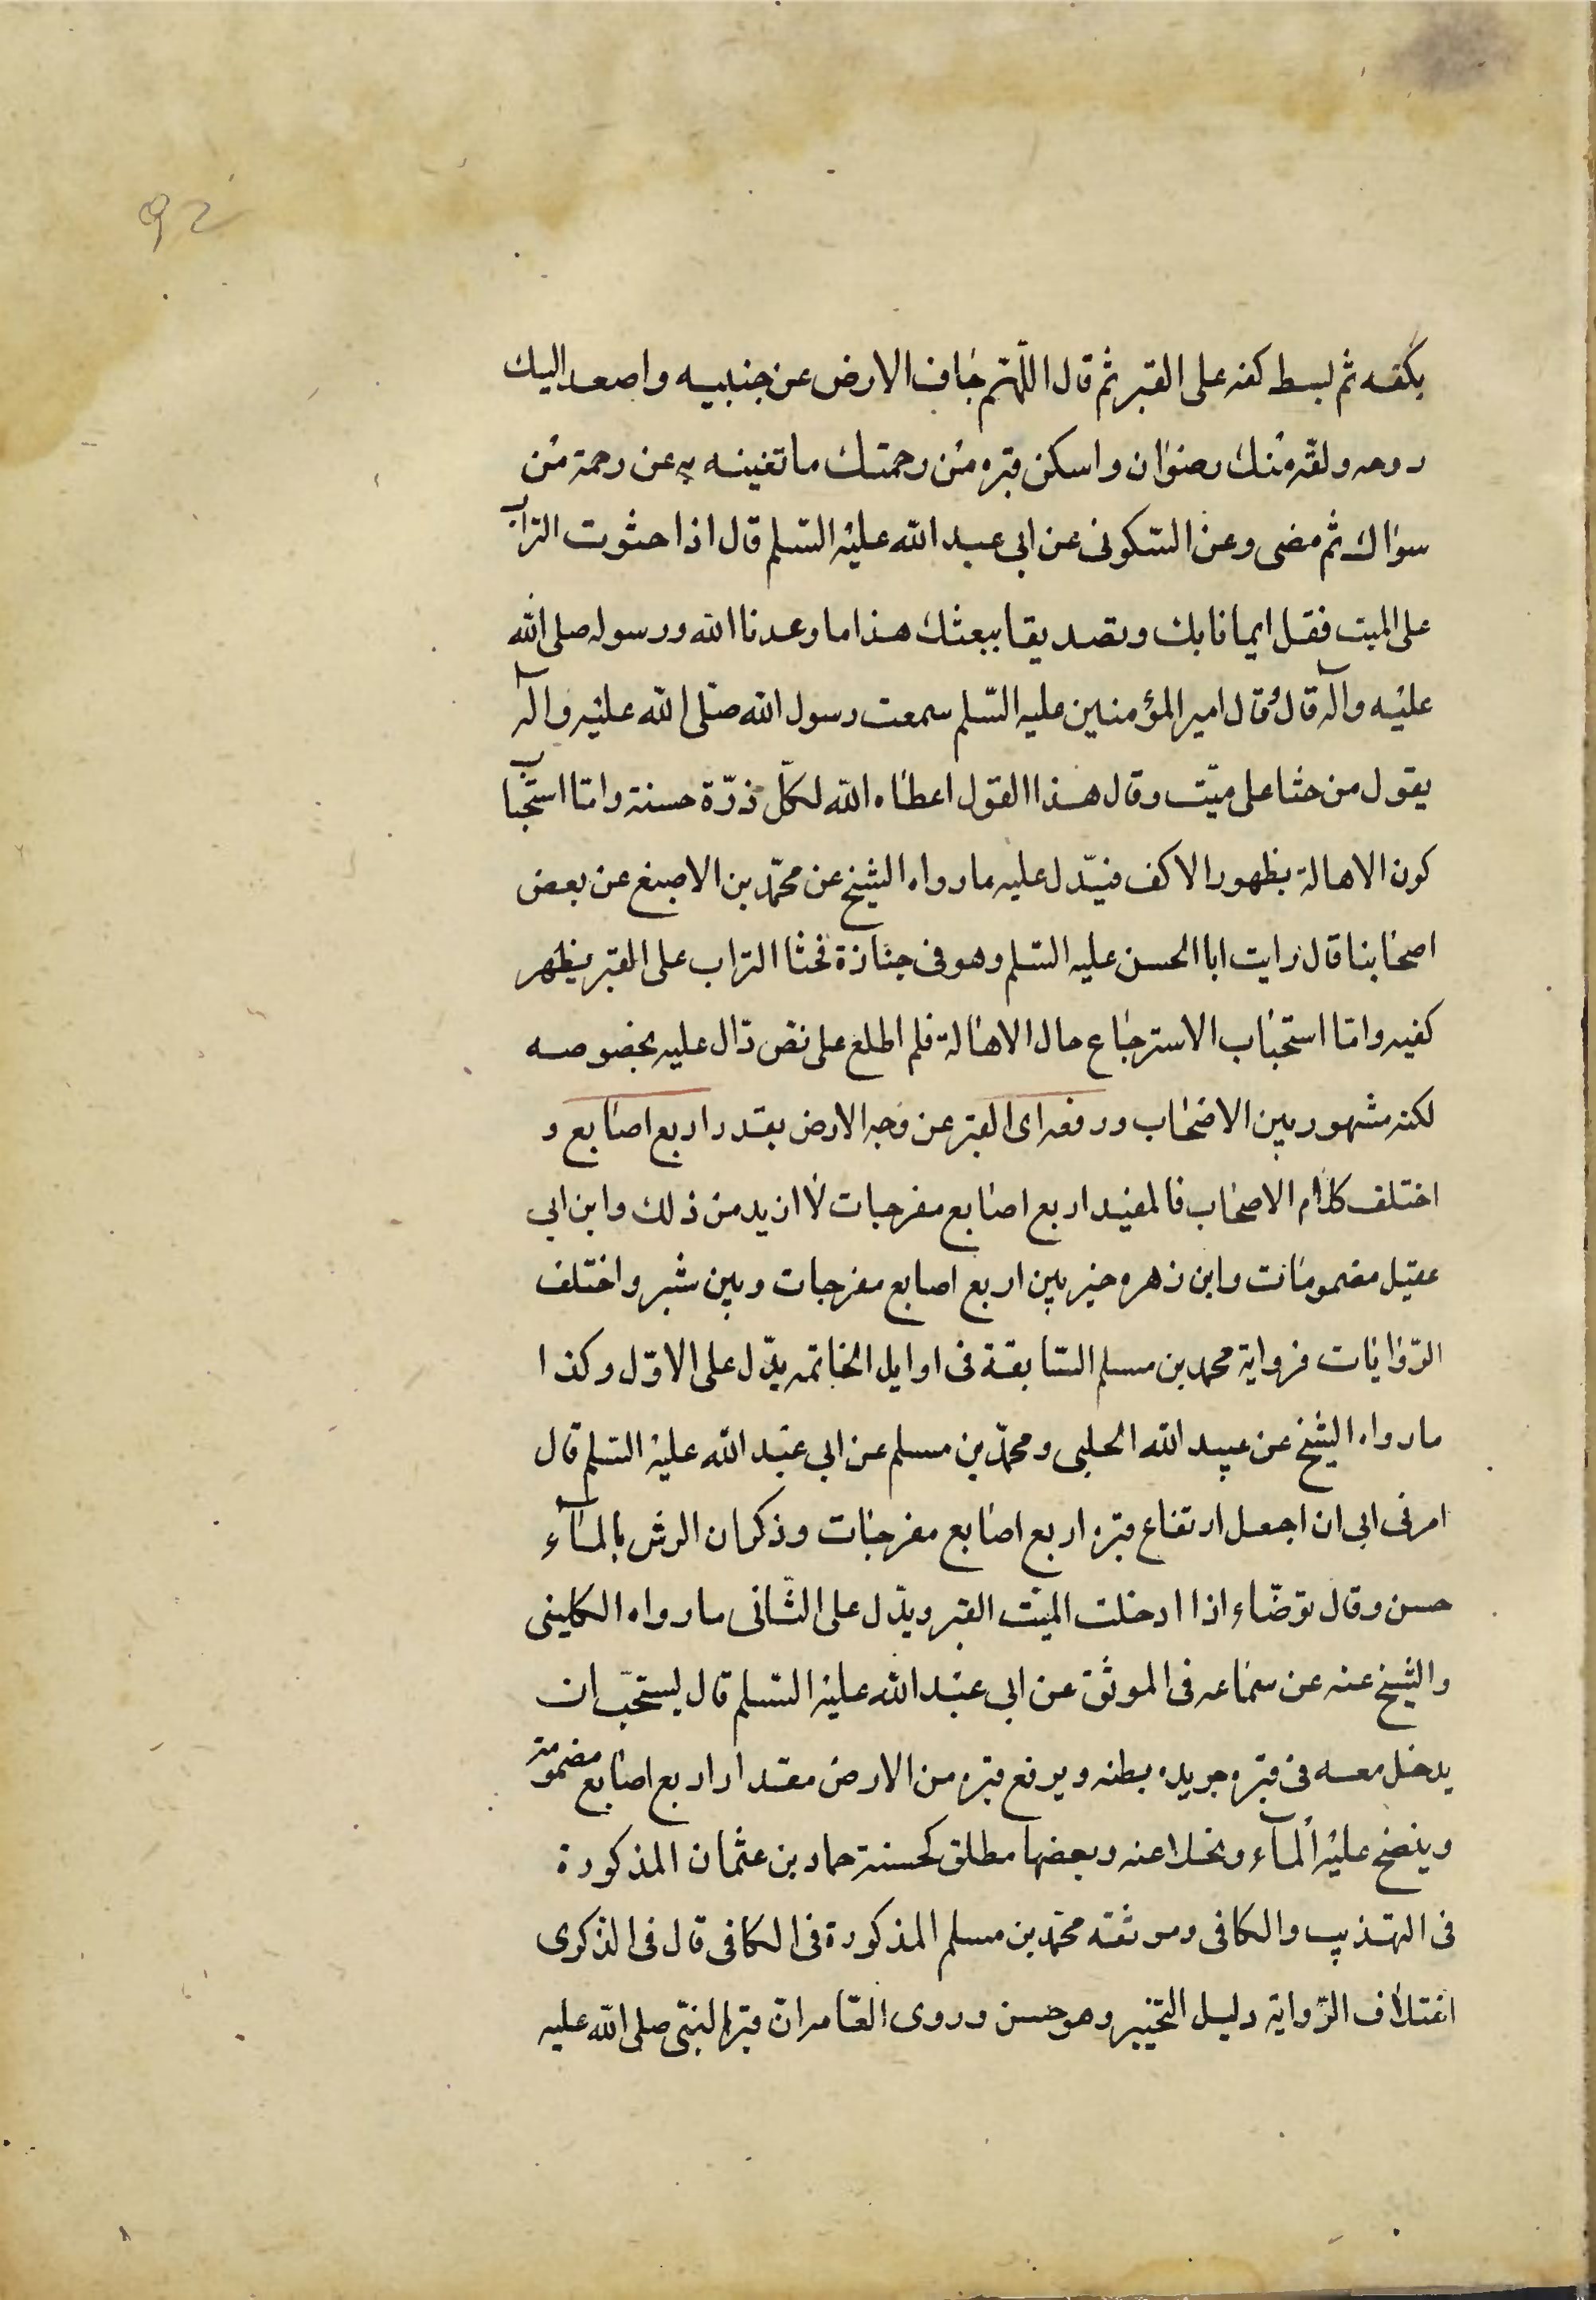 92
بكفه ثم بسط كفه على القبر ثم قال اللّهّم جاف الارض عن جنبيه واصعد اليك
روحه ولقّه منك رضوان واسكن قبره من رحمتك ما تغنيه به عن رحمة من
سواك ثم مضى وعن السّكونى عن ابى عبد الله عليه السّلم قال اذا حثوت التراب
على الميت فقل ايمانا بك وتصديقا ببعثك هذا ما وعدنا الله ورسوله صلى الله
عليه وآله قال وقال امير المؤمنين عليه السّلم سمعت رسول الله صلّى الله عليه وآله
يقول من حثا على ميّت وقال هذا القول اعطاه الله لكلّ ذرّة حسنة وامّا استحباب
كون الاهالة بظهور الاكف فيدّل عليه ما رواه الشيخ عن محمّد بن الاصبغ عن بعض
اصحابنا قال رايت ابا الحسن عليه السّلم وهو فى جنازة فحثا التراب على القبر بظهر
كفيه وامّا استحباب الاسترجاع حال الاهالة فلم اطلع على نصّ دّال عليه بخصوصه
لكنه مشهور بين الاصحاب ورفعه اى القبر عن وجه الارض بقدر اربع اصابع و
اختلف كلام الاصحاب فالمفيد اربع اصابع مفرجات لا ازيد من ذلك وابن ابى
عقيل مضمومات وابن زهره خير بين اربع اصابع مفرجات وبين شبر واختلف
الرّوايات فرواية محمد بن مسلم السّابقة فى اوايل الخاتمه يدّل على الاوّل وكذا
ما رواه الشيخ عن عبيد الله الحلبى ومحمّد بن مسلم عن ابى عبد الله عليه السّلم قال
امرنى ابى ان اجعل ارتفاع قبره اربع اصابع مفرجات وذكر ان الرش بالمآء
حسن وقال توضّاء اذا ادخلت الميّت القبر ويدّل على الثّانى ما رواه الكلينى
والشيخ عنه عن سماعه فى الموثق عن ابى عبد الله عليه السّلم قال يستحبّ ان
يدخل معه فى قبره جريده رطبه ويرفع قبره من الارض مقدار اربع اصابع مضمومة
وينضح عليه المآء ويخلا عنه وبعضها مطلق كحسنة حماد بن عثمان المذكورة
فى التهذيب والكافى وموثقه محمّد بن مسلم المذكورة فى الكافى قال فى الذكرى
اختلاف الرّواية دليل التخيير وهو حسن وروى العّامة انّ قبر النبّى صلى الله عليه